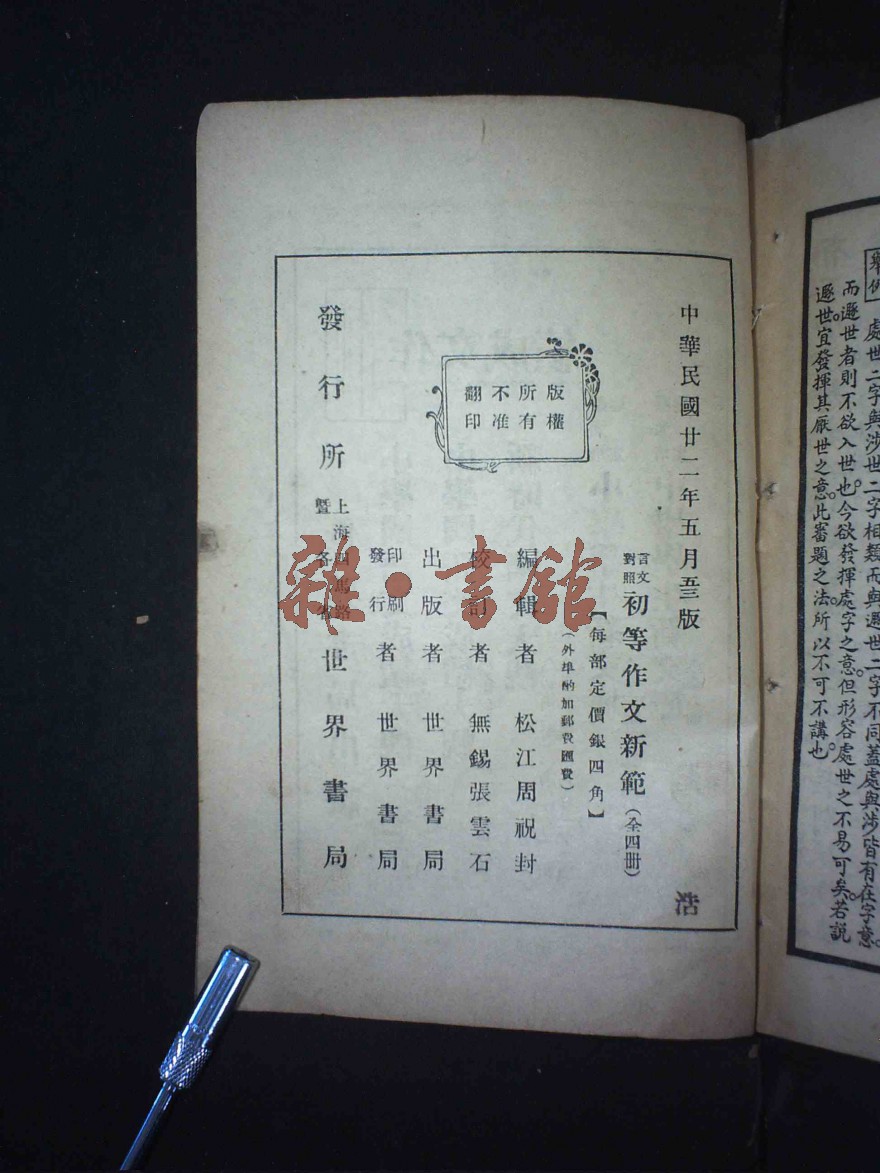 舉例
處世二字與涉世二字相類而與遯世二字不同蓋處與涉皆有在字意
而遯世者則不欲入世也今欲發揮處字之意但形容處世之不易可矣若説
遯世宜發揮其厭世之意此審題之法所以不可不講也
中華民國廿二年五月五三版
言文對照
初等作文新範(全四册)
【每部定價銀四角】
(外埠酌加郵費匯費)
版權
所有
不准
翻印
編輯者 松江周祝封
校訂者 無錫張雲石
出版者 世界書局
印刷發行者 世界書局
發行所 上海四馬路暨各省 世界書局
雜·書館